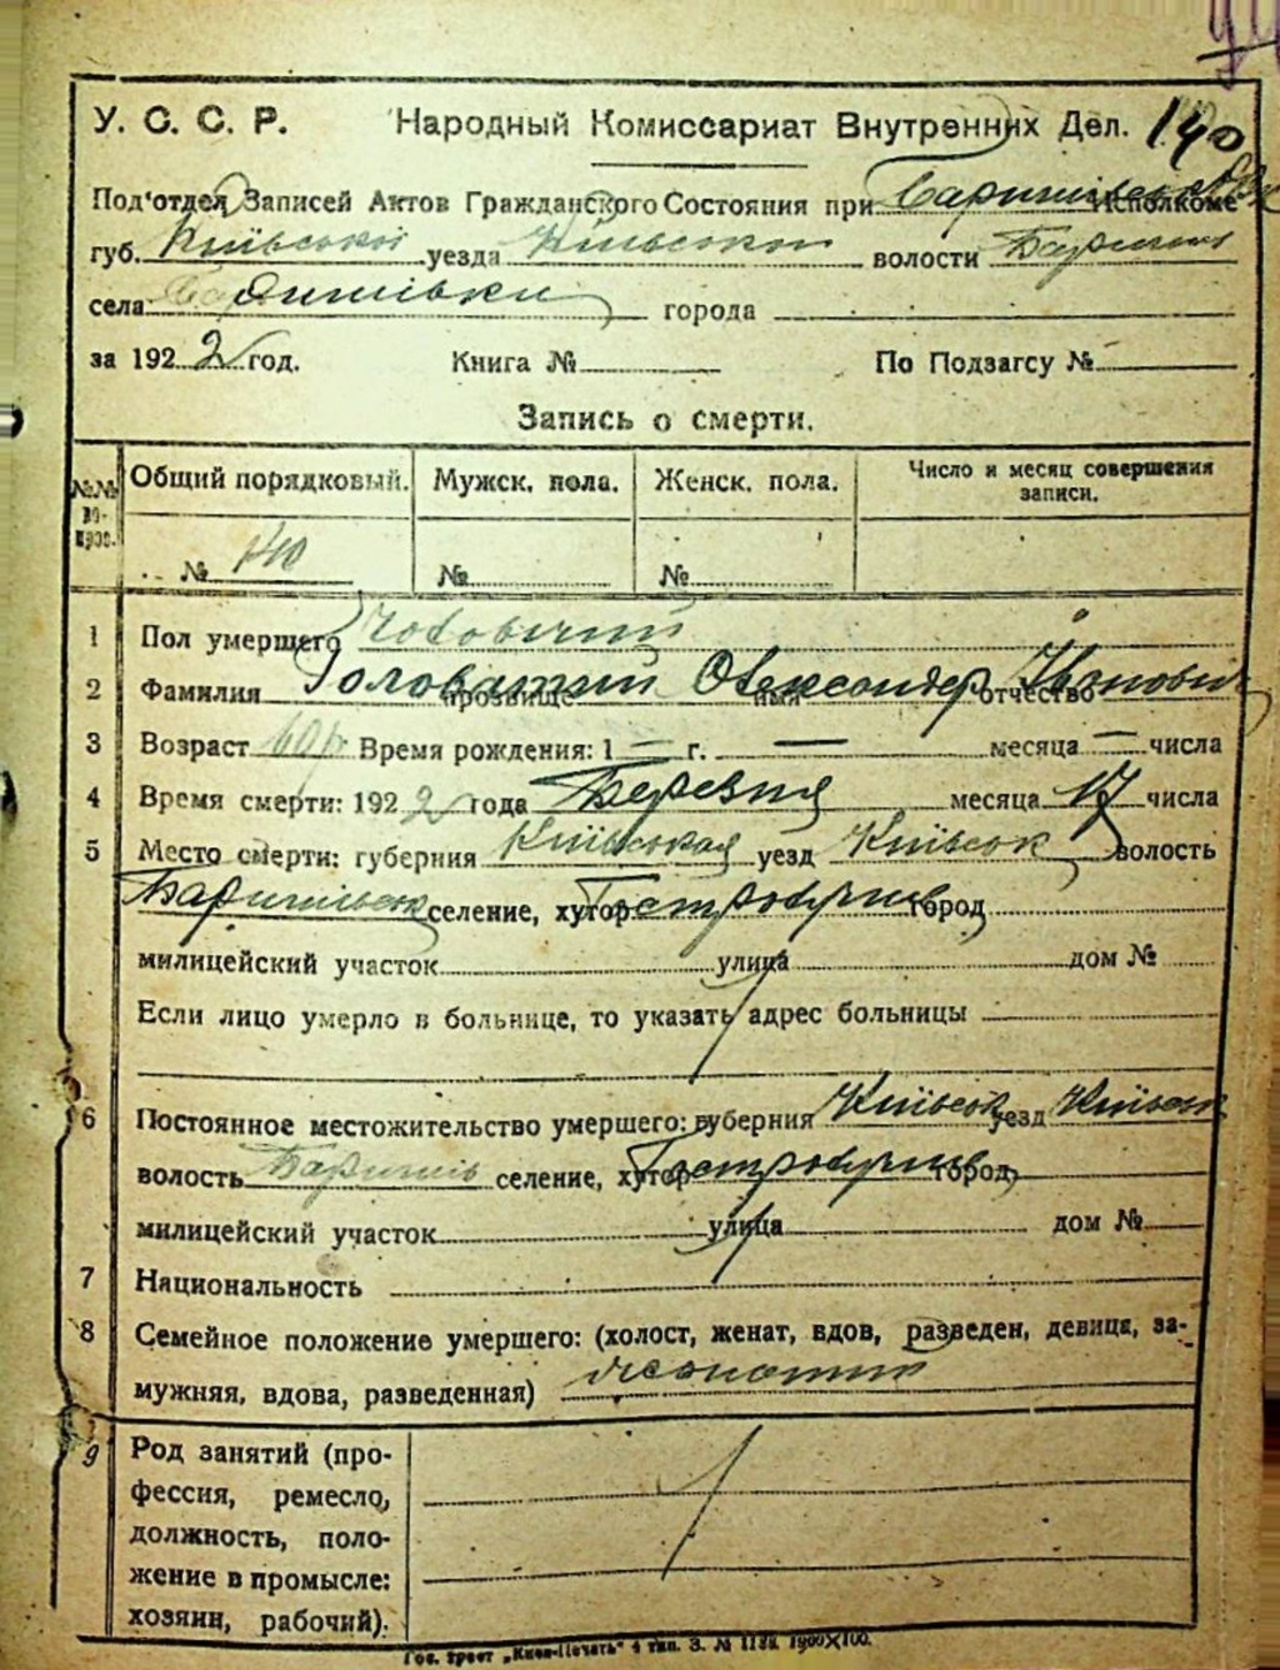 У. С. С. Р. Народный Комиссариат Внутренних Дел. 140
Под'отдел Записей Актов Гражданского Состояния при Исполкоме
губ. Київської уезда Київської волости Бариш
села Баришівки города
за 1922 год. Книга № По Подзагсу №
Запись о смерти.
№№ во- прос. Общий порядковый. Мужск. пола. Женск. пола. Число и месяц совершения записи.
№ 140 № №
1 Пол умершего Чоловічий
2 Фамилия Головатий прозвище Олександер имя Іванович отчество
3 Возраст Время рождения: 1 — г. — месяца — числа
4 Время смерти: 1922 года Березня месяца 17 числа
5 Место смерти: губерния Київская уезд Київськ волость
Баришівськ селение, хутор город
милицейский участок улица дом №
Если лицо умерло в больнице, то указать адрес больницы
6 Постоянное местожительство умершего: губерния Київськ уезд Київськ
волость Баришів селение, хутор город
милицейский участок улица дом №
7 Национальность
8 Семейное положение умершего: (холост, женат, вдов, разведен, девица, за-
мужняя, вдова, разведенная) жонатий
9 Род занятий (про-
фессия, ремесло,
должность, поло-
жение в промысле:
хозяин, рабочий).
Гос. трест „Киев-Печать" 4 тип. З. № 1900×100.